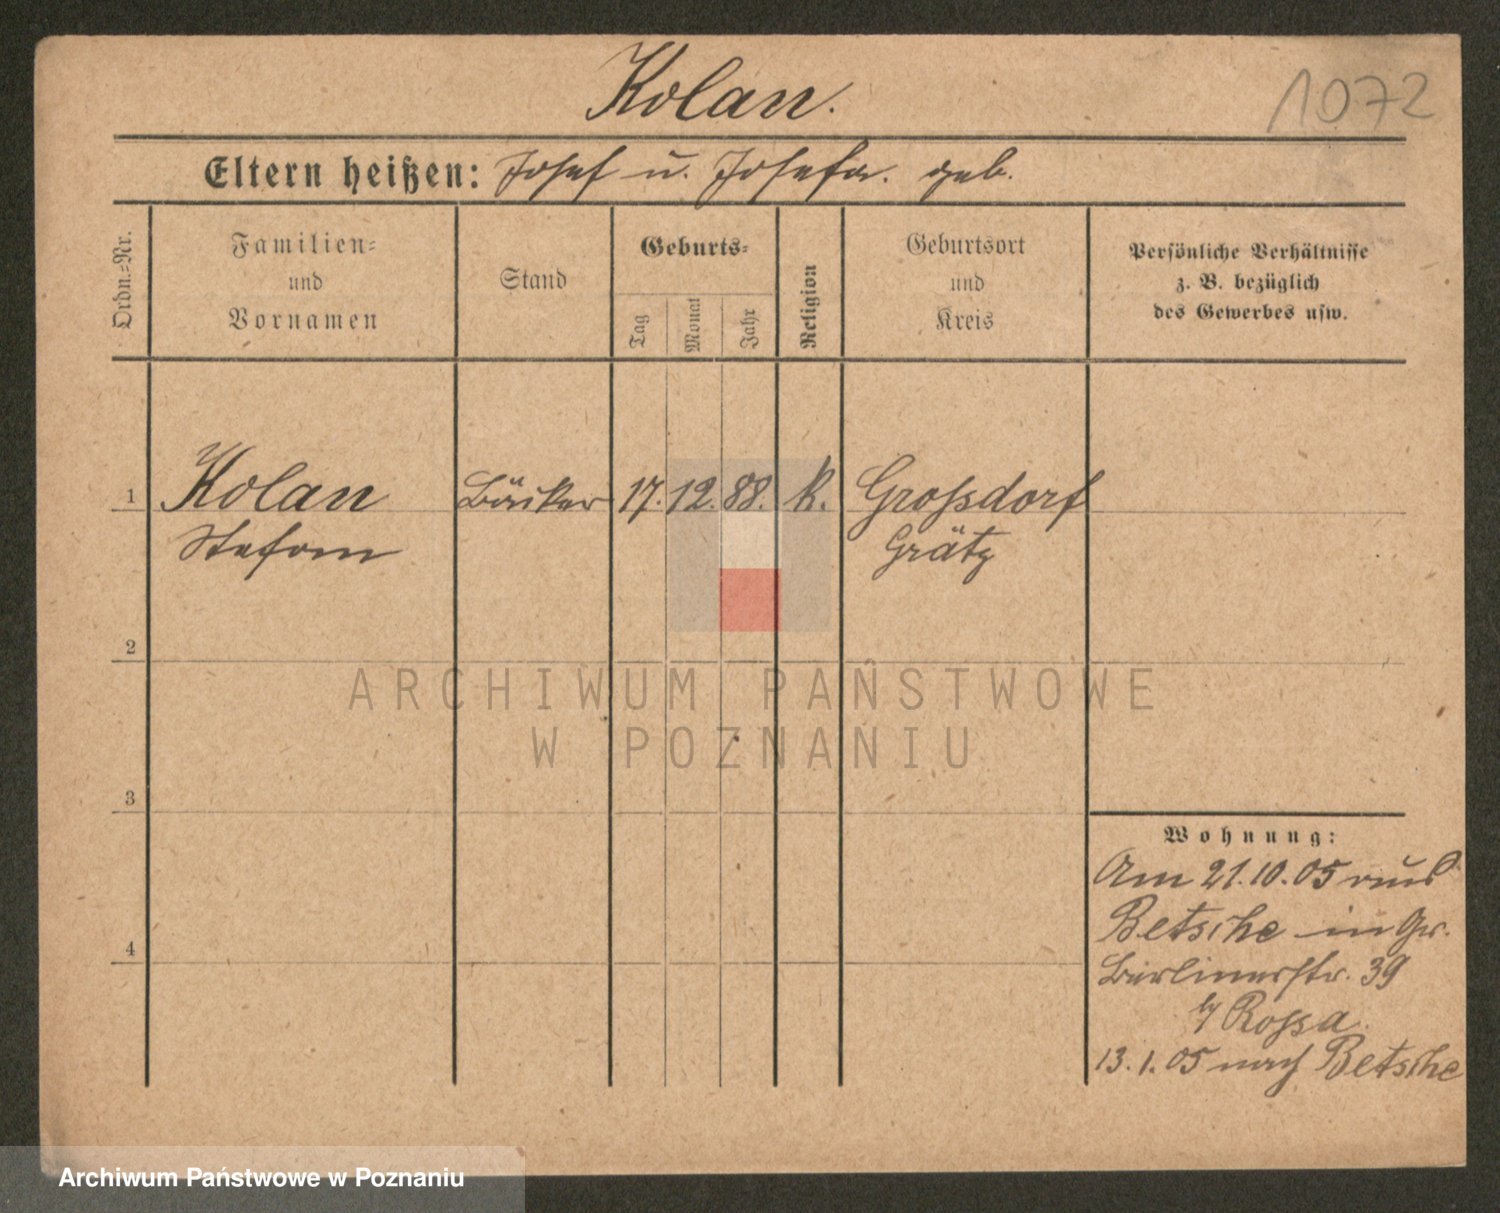 Kolan.
1072
Eltern heißen: Josef u. Josefa. geb.
Ordn.-Nr.
Familien-
und
Vornamen
Stand
Geburts-
Tag
Monat
Jahr
Religion
Geburtsort
und
Kreis
Persönliche Verhältnisse
z. B. bezüglich
des Gewerbes usw.
1 Kolan Bäcker 17. 12. 88. k. Grossdorf
Stefan Grätz
2
ARCHIWUM PAŃSTWOWE
W POZNANIU
3
Wohnung:
Am 21.10.05 aus
Betsche in Gr.
4
Berlinerstr. 39
b/ Rossa.
13.1.05 nach Betsche
Archiwum Państwowe w Poznaniu